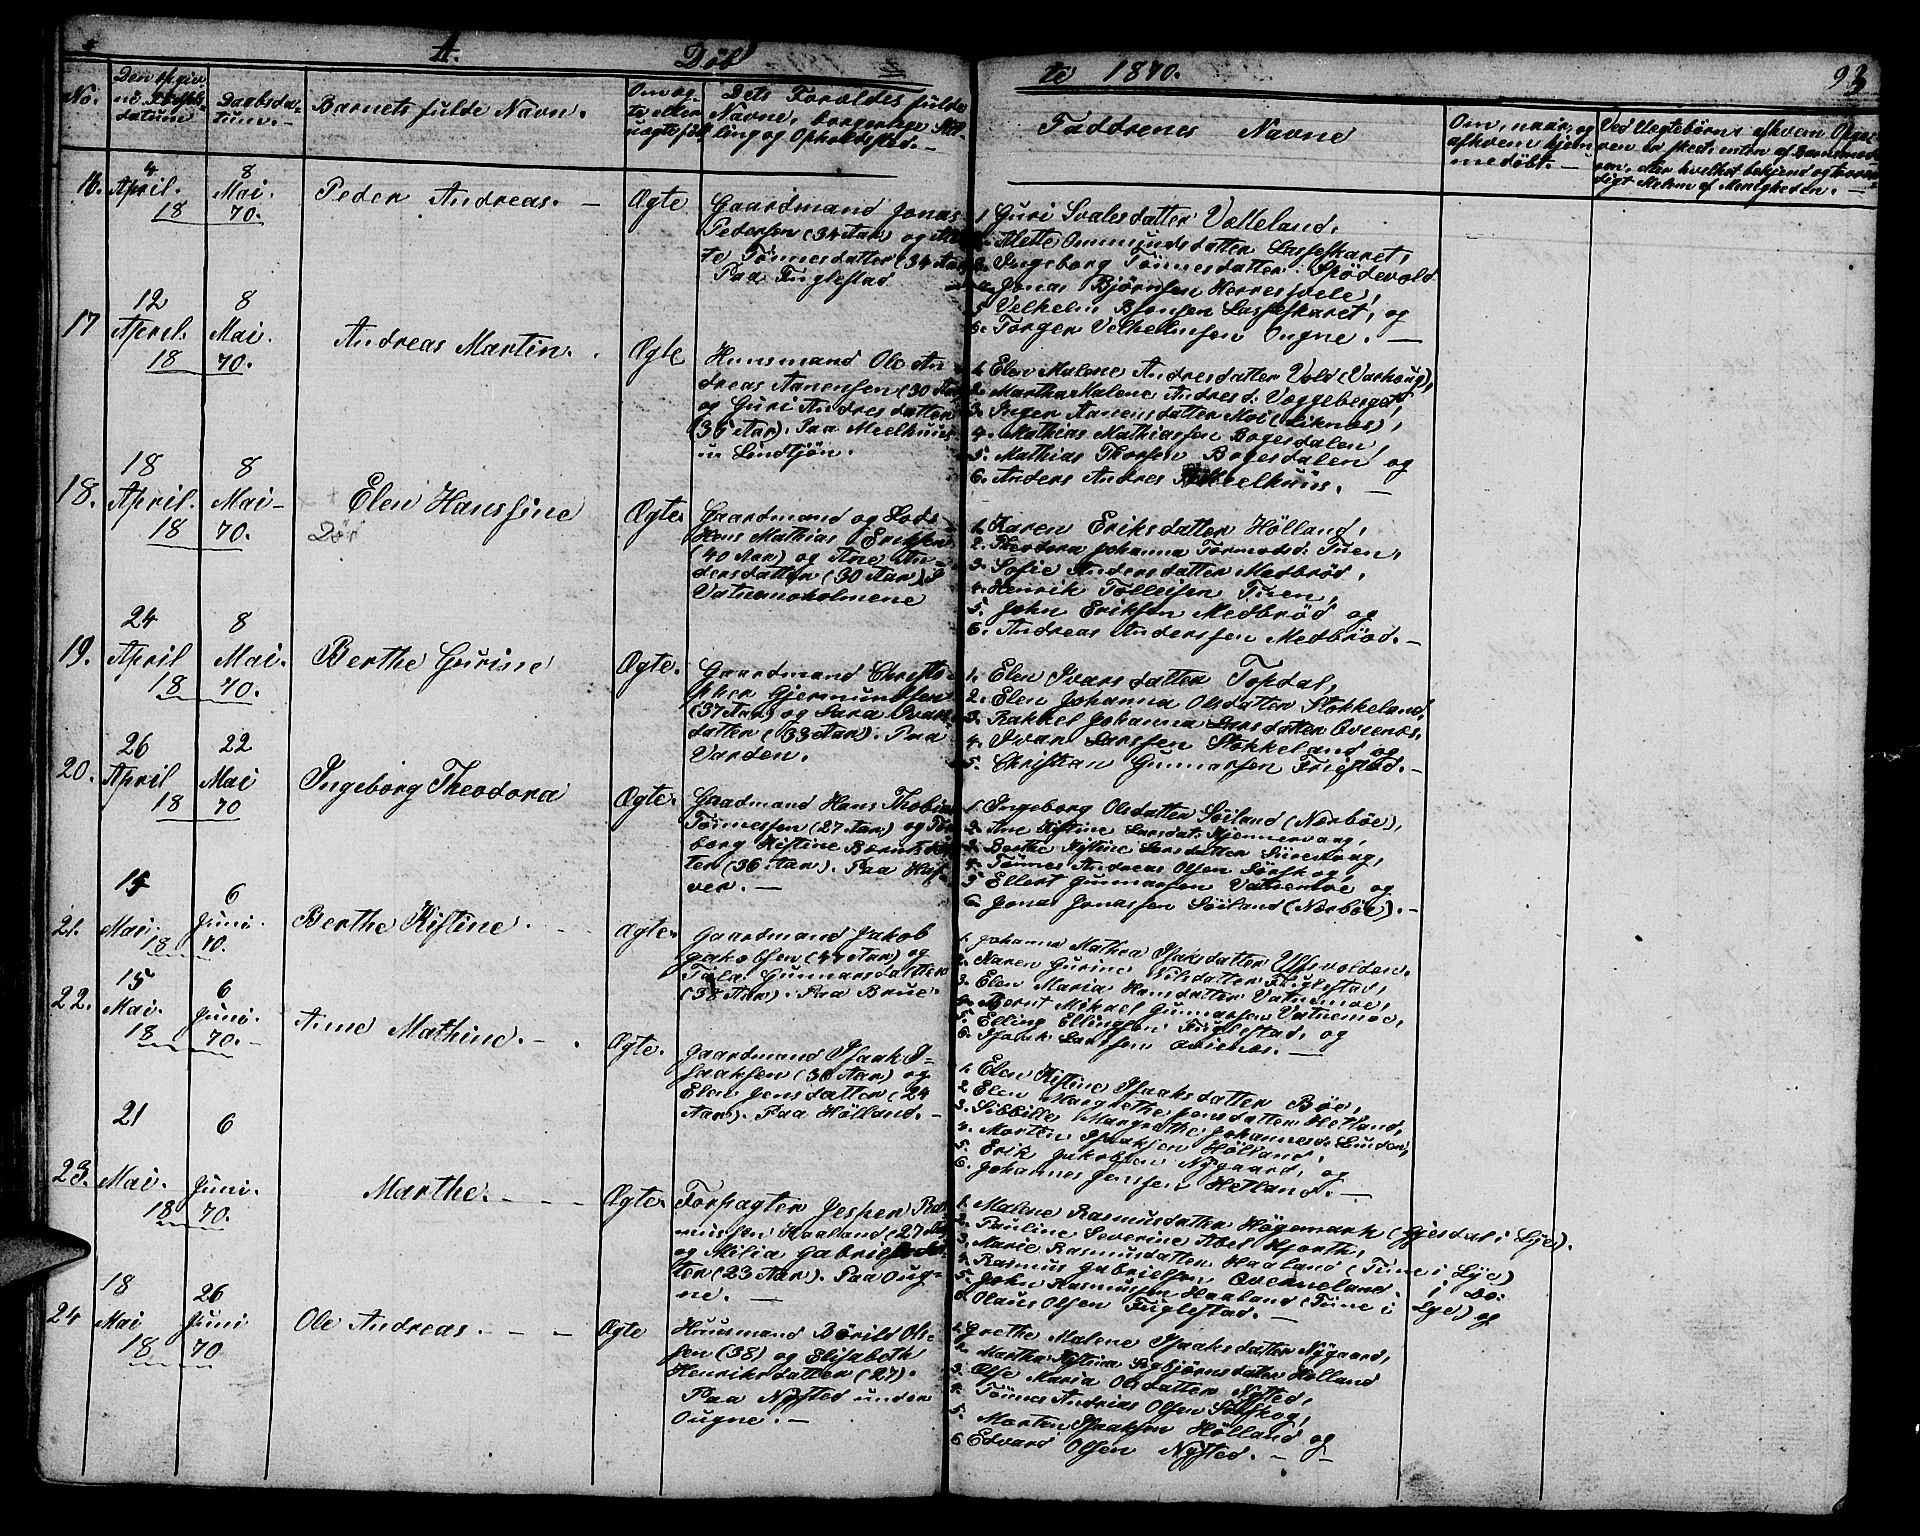 A.
Døb
te 1870.
93
No.
Den opgiv
ne Fødsels-
datum
Daabsda-
tum.-
Barnets fulde Navn.
Om æg-
te eller
uægte fød
Dets Foreldes fulde
Navne, borgerlige Stil-
ling og Opholdssted.-
Faddrenes Navne
Om, naar og
afhvem hjem
medøbt.-
Ved Uegtebørn: afhvem Opgav
ven er skeet, enten af Barnemod-
eren, eller hvilket bekjend og trovær-
digt Medlem af Menigheden.-
16.
4
April.
18
8
Mai.
70.
Peder Andreas.-
Ægte
Gaardmand Jonas
Pedersen (34 Aar) og
te Tönnesdatter (34 Aar
Paa Fuglestad
1. Guri Svalesdatter Velleland,
2. Alette Ommundsdatter Lassesskaret,
3. Ingeborg Tönnesdatter Spödevold
4. Jonas Bjørnsen Herresvele,
5 Velhelm Bjonsen Lasseskaret, og
6. Torger Velhelmsen Ougne.-
17
12
April.
18
8
Mai.
70.
Andreas Martin.
Ægte
Huusmand Ole An
dreas Aanensen (30 Aar
og Guri Andresdatter
(36 Aar). Paa Meelhuus
u Lindtjön.
1. Elen Malene Andresdatter Vold (Varhoug),
2. Martha Malene Andresd: Voggeberget,
3. Inger Aanensdatter Moi (Liknæs),
4. Mathias Mathiassen Bogesdalen,
5. Mathias Thorsen Bogesdalen og
6. Anders Andres Meelhuus.-
18.
18
April.
18
8
Mai-
70.
Elen Hanssine
Død
Ægte.
Gaardmand og Lods
Hans Mathias Eriksen
(40 Aar) og Ane An-
dersdatter (30 Aar) i
Vatnemoholmene
1. Karen Eriksdatter Hølland,
2. Theodora Johanna Tormodsd: Tuen,
3. Sofie Andersdatter Medbrød,
4. Henrik Tolleisen Tuen,
5. John Eriksen Medbrød og
6. Andreas Anderssen Medbröd.-
19.
24
April
18
8
Mai.
70.
Berthe Gurine
Ægte.
Gaardmand Christo-
pher Gjermundsen
(37 Aar) og Sara Ivars
datter (33 Aar). Paa
Varden.
1. Elen Ivarsdatter Topdal,
2. Elen Johanna Olsdatter Stokkeland,
3. Rakkel Johanna Larsdatter Qvenæs,
4. Ivar Larssen Stokkeland og
5. Christian Gunnarsen Friestad.-
20.
26
April
18
22
Mai
70
Ingeborg Theodora
Ægte.
Gaardmand Hans Thobias
Tönnessen (27 Aar) og
borg Kistine Berntsdat
ter (36 Aar). Paa Hus-
ver.-
1. Ingeborg Olsdatter Söiland (Nærbøe),
2. Ane Kistine Larsdat: Kjennervaag,
3. Berthe Kistine Larsdatter Siirevaag,
4. Tönnes Andreas Olsen Sörskog,
5 Ellert Gunnarsen Vatnemoe og
6. Jonas Jonassen Söiland (Nærböe).-
21.
14
Mai.
18
6
Juni.
70.
Berthe Kistine
Ægte.
Gaardmand Jakob
Jakobsen (47 Aar) og
Tala Gunnarsdatter
(38 Aar). Paa Brue.
1. Johanna Mathea Isaksdatter Ulfsvolden.
2. Karen Gurine Nilsdatter Fuglestad,
3. Elen Maria Hansdatter Vatnemoe,
4. Bernt Mikael Gunnarsen Vatnemoe,
5. Elling Ellingsen Fuglestad, og
6. Isaak Larssen Qvienæs.-
22.
15
Mai.
18
6
Juni.
70.-
Anne Mathine.-
Ægte.
Gaardmand Isaak I-
saaksen (36 Aar) og
Elen Jensdatter (24
Aar). Paa Hølland.-
1. Elen Kistine Isaaksdatter Böe,
2. Elen Margrethe Jensdatter Hetland,
3. Sibbille Margrethe Johannesd: Lunden,
4. Morten Isaaksen Hölland,
5. Erik Jakobsen Nygaard, og
6. Johannes Jenssen Hetland.-
23.
21
Mai.
18
6
Juni.
70.
Marthe.- - -
Ægte.
Forpagter Jesper Ras
mussen Haaland (27 Aar
og Milia Gabrielsdat-
ter (23 Aar). Paa Oug-
ne.-
1. Malene Rasmusdatter Högemark (Gjesdal i Lye).
2. Pauline Severine Abel Hjorth,
3. Marie Rasmusdatter Haaland (Time i Lye)
4. Rasmus Gabrielsen Qverneland. i Do:
5. John Rasmussen Haaland (Time i Lye) og
6. Olaus Olsen Fuglestad.-
24
18
Mai
18
26
Juni
70
Ole Andreas.- - -
Ægte
Huusmand Börild Ols-
sen (38) og Elisabeth
Henriksdatter (27).
Paa Nysted under
Ougne.-
1. Grethe Malene Isaaksdatter Nygaard,
2. Martha Kistina Sigbjörnsdatter Hölland
3. Olse Maria Olsdatter Nysted,
4. Tönnes Andreas Olsen Sörskog,
5. Morten Isaaksen Hölland og
6 Edvard Olsen Nysted.-